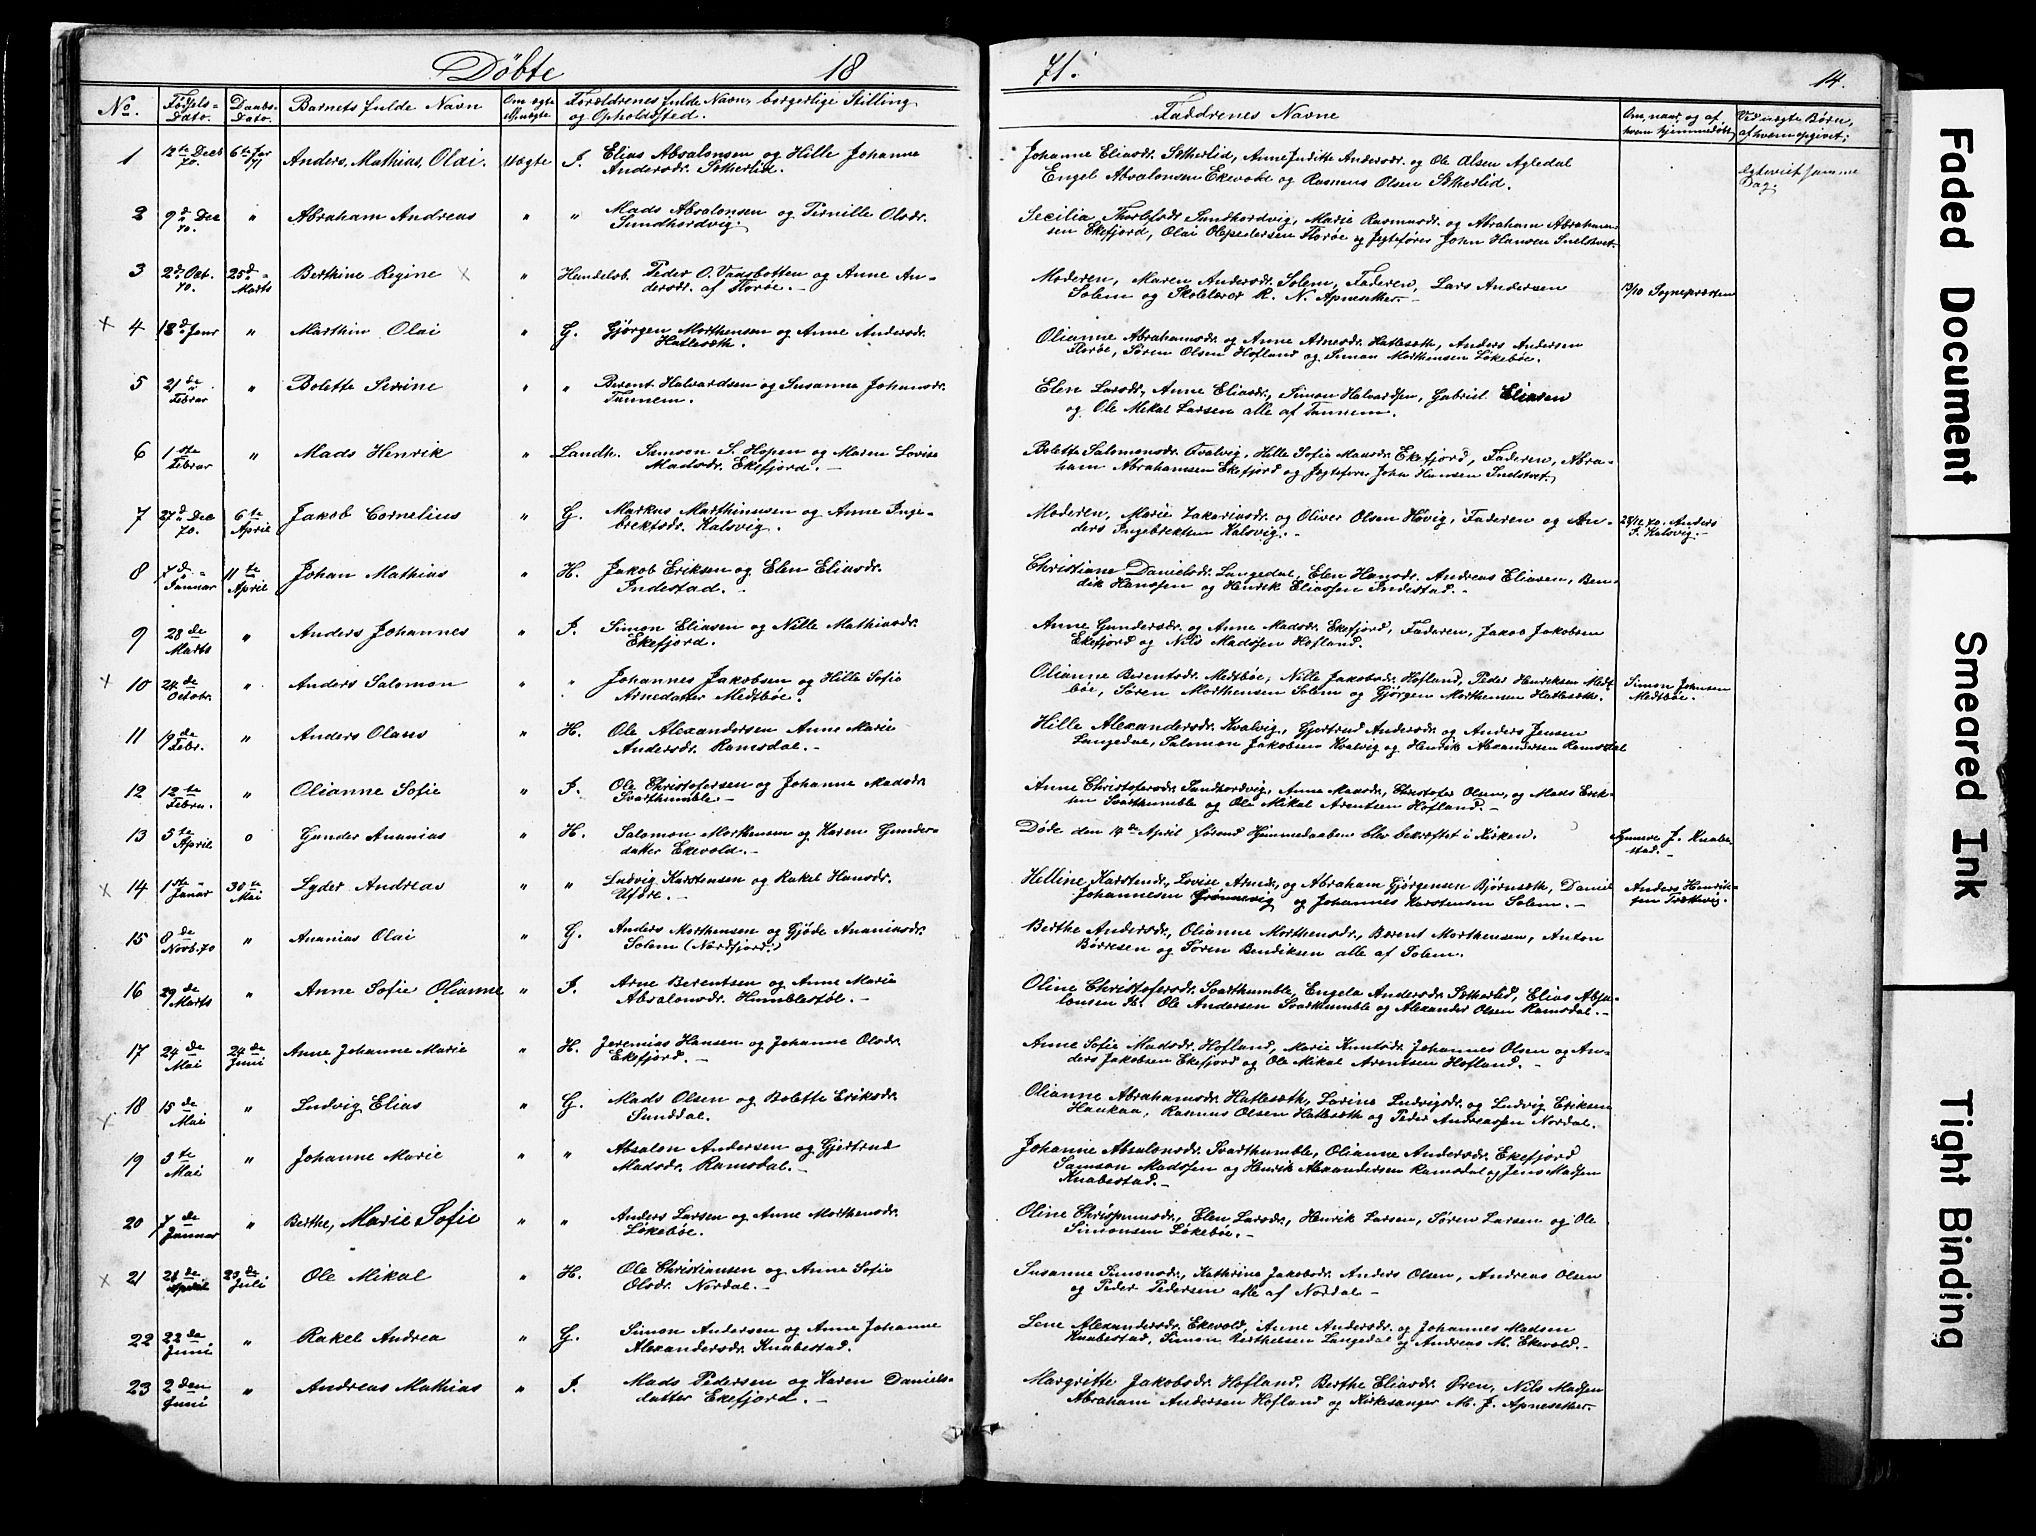 Döbte 18
71.
14.
No. Fødsels-Dato. Daabs-Dato. Barnets fulde Navn Om ægte el. uægte Forældrenes fulde Navn, borgerlige Stilling og Opholdssted.
Faddrenes Navne Om, naar, og af hvem hjemmedøbt Ved uægte Børn, af hvem opgivet;
1 12te Decb 70. 6te Jar 71 Anders, Mathias, Olai. Uægte I. Elias Absalonsen og Hille Johanne
Andersdr. Sætherlid.
Johanne Eliasdr. Sætherlid, Anne Juditte Andersdr. og Ole Olsen Agledal
Engel Absalonsen Ekevold og Rasmus Olsen Sætherlid.
samme
Dag.
2 9d Dec 70. " Abraham Andreas " " Mads Absalonsen og Pernille Olsdr.
Sundhordvig.
Secilia Thorlefsdr Sundhordvig, Marie Rasmusdr. og Abraham Abraham-
sen Ekefjord, Olai Olepedersen Florøe og Jegtefører John Hansen
3 2d Oct. 70. 25d Marts Berthine Regine × " Handelsb. Peder O. Vassbotten og Anne An-
dersdr. af Florøe. -
Moderen, Maren Andersdr. Solem, Faderen, Lars Andersen
Solem og Skolelærer R. N. Apnesether.
13/10 Sognepræsten
× 4 18d Janr " Marthin Olai " G. Gjørgen Morthensen og Anne Andersdr.
Hatlesæth.
Olianne Abrahamsdr. og Anne Arnesdr. Hatlesæth, Anders Andersen
Florøe, Søren Olsen Hofland og Simon Morthensen Løkebøe.
5 21de Febrar " Bolette Serine " " Berent Halvardsen og Susanne Johansdr.
Tunnem.
Elen Larsdr., Anne Eliasdr., Simon Halvardsen, Gabriel Eliasen
og Ole Mikal Larsen alle af Tunnem.
6 1ste Febrar " Mads Henrik " Landh. Samson S. Hopen og Maren Lovise
Madsdr. Ekefjord. -
Bolette Salomonsdr. Qvalvig, Hille Sofia Madsdr. Ekefjord, Faderen, Abra-
ham Abrahamsen Ekefjord og Jegtefører John Hansen
7 27d Dec 70. 6te April Jakob Cornelius " G. Markus Marthinusen og Anne Inge-
brektsdr. Kalsvig.
Moderen, Marie Zakariasdr. og Oliver Olsen Høvig, Faderen og An-
ders Ingebrektsen Kalsvig. -
28/12 70. Anders
I. Kalsvig. -
8 7d Januar 11te April Johan Mathias " H. Jakob Eriksen og Elen Eliasdr.
Indestad. -
Christiane Danielsdr. Langedal, Elen Hansdr. Andreas Eliasen, Ben-
dik Hanssen og Henrik Eliassen Indestad. -
9 28de Marts " Anders Johannes " I. Simon Eliasen og Nille Mathiasdr.
Ekefjord.
Anne Gundersdr. og Anne Madsdr. Ekefjord, Faderen, Jakob Jakobsen
Ekefjord og Nils Madssen Hofland.
× 10 24de Octobr. " Anders Salomon " " Johannes Jakobsen og Hille Sofie
Arnedatter Medtbøe.
Olianne Berentsdr. Medtbøe, Nille Jakobsdr. Hofland, Peder Henriksen Medt-
bøe, Søren Morthensen Solem og Gjørgen Morthensen Hatlesæth.
Simon Johnsen
Medtbøe.
11 19de Febr. " Anders Olaus " H. Ole Alexandersen Anne Marie
Andersdr. Ramsdal. -
Hille Alexandersdr. Kvalvig, Gjertrud Andersdr. og Anders Jensen
Langedal, Salomon Jakobsen Kvalvig og Henrik Alexandersen Ramsdal
12 12te Febru. " Olianne Sofie " I. Ole Christofersen og Johanne Madsdr.
Svarthumble. -
Anne Christofersdr. Sundhordvig, Anne Madsdr., Christofer Olsen, og Mads Erik-
sen Svarthumble og Ole Mikal Arentsen Hofland. -
13 5te April o Gunder Ananias " H. Salomon Morthensen og Karen Gunder-
datter Ekevold. -
Døde den 14de April førend Hjemmedaaben blev bekræftet i Kirken.
J. Knabe-
stad. -
× 14 1ste Januar 30te Mai Lyder Andreas " " Ludvig Karstensen og Rakel Hansdr.
Ufdre. -
Helline Karstensdr., Lovise Arnedr, og Abraham Gjørgensen Bjørnseth, Daniel
Johannesen Grønnevig og Johannes Karstensen Solem. -
Anders Henrik-
sen
15 8de Novb. 70 " Ananias Olai " G. Anders Morthensen og Gjøde Ananiasdr.
Solem (Nordfjord.)
Berthe Andersdr., Olianne Morthensdr., Berent Morthensen, Anton
Børresen og Søren Bendiksen alle af Solem.
16 29de Marts " Anne Sofie Olianne " I. Arne Berentsen og Anne Marie
Absalonsdr. Humblestøl. -
Oline Christofersdr. Svarthumble, Engela Andersdr. Sætherlid, Elias Absa-
lonsen St. Ole Andersen Svarthumble og Alexander Olsen Ramsdal. -
17 24de Mai 24de Juni Anne Johanne Marie " H. Jeremias Hansen og Johanne Olsdr.
Ekefjord. -
Anne Sofie Madsdr. Hofland, Marie Knutsdr. Johannes Olsen og An-
ders Jakobsen Ekefjord og Ole Mikal Arentsen Hofland. -
× 18 15de Mai " Ludvig Elias " G. Mads Olsen og Bolette Eriksdr.
Sunddal. -
Olianne Abrahamsdr. Hatlesæth, Larine Ludvigsdr. og Ludvig Eriksen
Haukaa, Rasmus Olsen Hatlesæth og Peder Andreassen Nordal.
19 3te Mai " Johanne Marie " " Absalon Andersen og Gjertrud
Madsdr. Ramsdal. -
Johanne Absalonsdr. Svarthumble, Olianne Andersdr. Ekefjord
Samson Madssen og Henrik Alexandersen Ramsdal og Jens Madsen
Knabestad. -
20 7de Januar " Berthe, Marie Sofie " " Anders Larsen og Anne Morthensdr.
Løkebøe.
Oline Chrispinusdr., Elen Larsdr., Henrik Larsen, Søren Larsen og Ole
Simonsen Løkebøe. -
× 21 21de April 23de Juli Ole Mikal " H. Ole Christiansen og Anne Sofie
Olsdr. Nordal. -
Susanne Simonsdr., Kathrine Jakobsdr. Anders Olsen, Andreas Olsen
og Peder Pedersen alle af Nordal -
22 22de Juni " Rakel Andrea " G. Simon Andersen og Anne Johanne
Alexandersdr. Knabestad.
Lene Alexandersdr. Ekevold, Anne Andersdr. og Johannes Madsen
Knabestad, Simon Berthelsen Langedal og Andreas M. Ekevold. -
23 2den Juni " Andreas Mathias " I. Mads Pedersen og Karen Daniels-
datter Ekefjord. -
Margrethe Jakobsdr. Hofland, Berthe Eliasdr. Øren, Nils Madsen
Abraham Andersen Hofland og Kirkesanger M. J. Apnesether.
Faded Document
Smeared Ink
Tight Binding